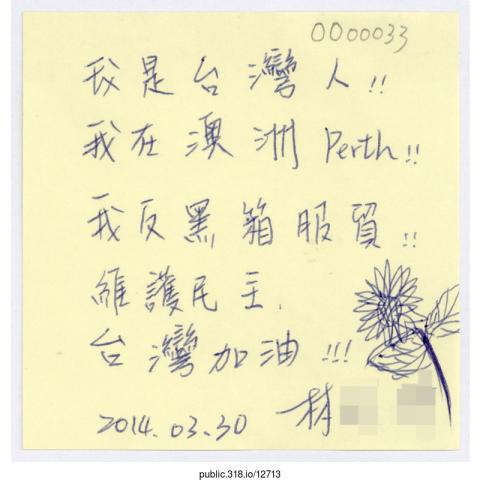 0000033
我是台灣人!!
我在澳洲 Perth!!
我反黑箱服貿!!
維護民主.
台灣加油!!!
2014.03.30 林
public.318.io/12713